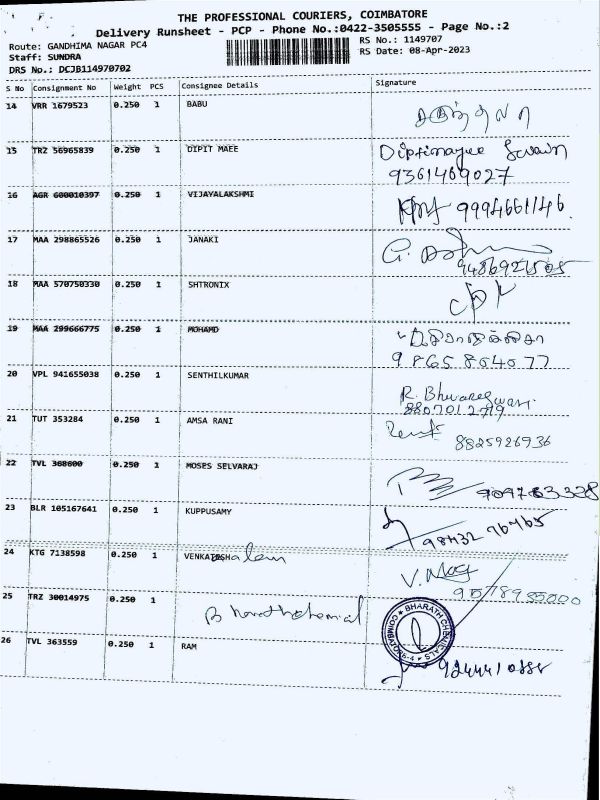 THE PROFESSIONAL COURIERS, COIMBATORE
Delivery Runsheet - PCP - Phone No.:0422-3505555 - Page No.:2
Route: GANDHIMA NAGAR PC4
RS No.: 1149707
Staff: SUNDRA
RS Date: 08-Apr-2023
DRS No.: DCJB114970702
S No Consignment No Weight PCS Consignee Details Signature
14 VRR 1679523 0.250 1 BABU
15 TRZ 56965839 0.250 1 DIPIT MAEE Diptimayee Swain
9361469027
16 AGR 600010397 0.250 1 VIJAYALAKSHMI 9994661146
17 MAA 298865526 0.250 1 JANAKI
18 MAA 570750330 0.250 1 SHTRONIX
19 MAA 299666775 0.250 1 MOHAMD
9865864077
20 VPL 941655038 0.250 1 SENTHILKUMAR R. Bhuvaneswari
21 TUT 353284 0.250 1 AMSA RANI
8825926936
22 TVL 368600 0.250 1 MOSES SELVARAJ
23 BLR 105167641 0.250 1 KUPPUSAMY
24 KTG 7138598 0.250 1
25 TRZ 30014975 0.250 1 Bharathchemial BHARATH CHEMICALS
26 TVL 363559 0.250 1 RAM